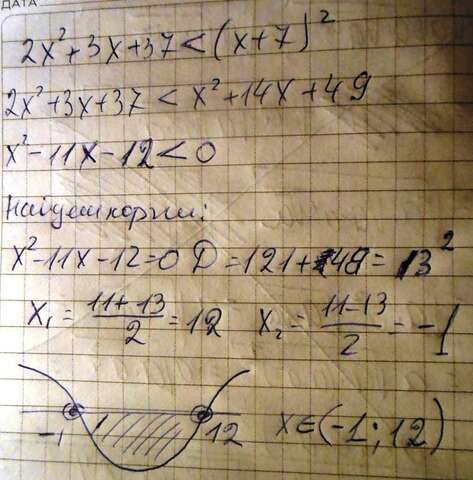 ДАТА
2x²+3x+37<(x+7)²
2x²+3x+37<x²+14x+49
x²-11x-12<0
Найдем корни:
x²-11x-12=0 D=121+48=13²
x₁=\frac{11+13}{2}=12 x₂=\frac{11-13}{2}=-1
-1 12 x∈(-1;12)